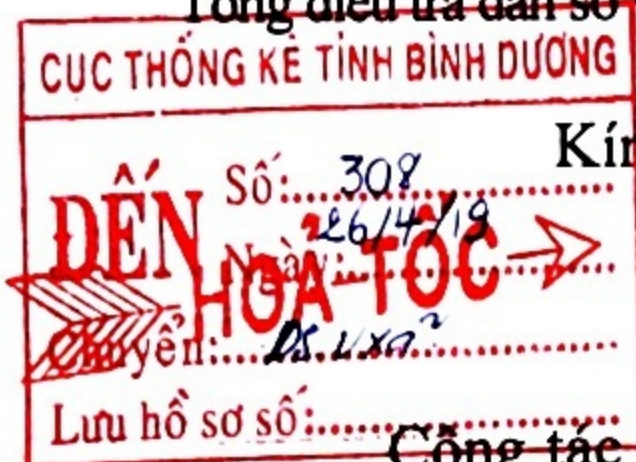 Tổng điều tra dân số
CỤC THỐNG KÊ TỈNH BÌNH DƯƠNG
Kín
ĐẾN Số:....308....
Ngày:....26/4/19....
HỎA TỐC
Chuyển:....
Lưu hồ sơ số:....
Công tác